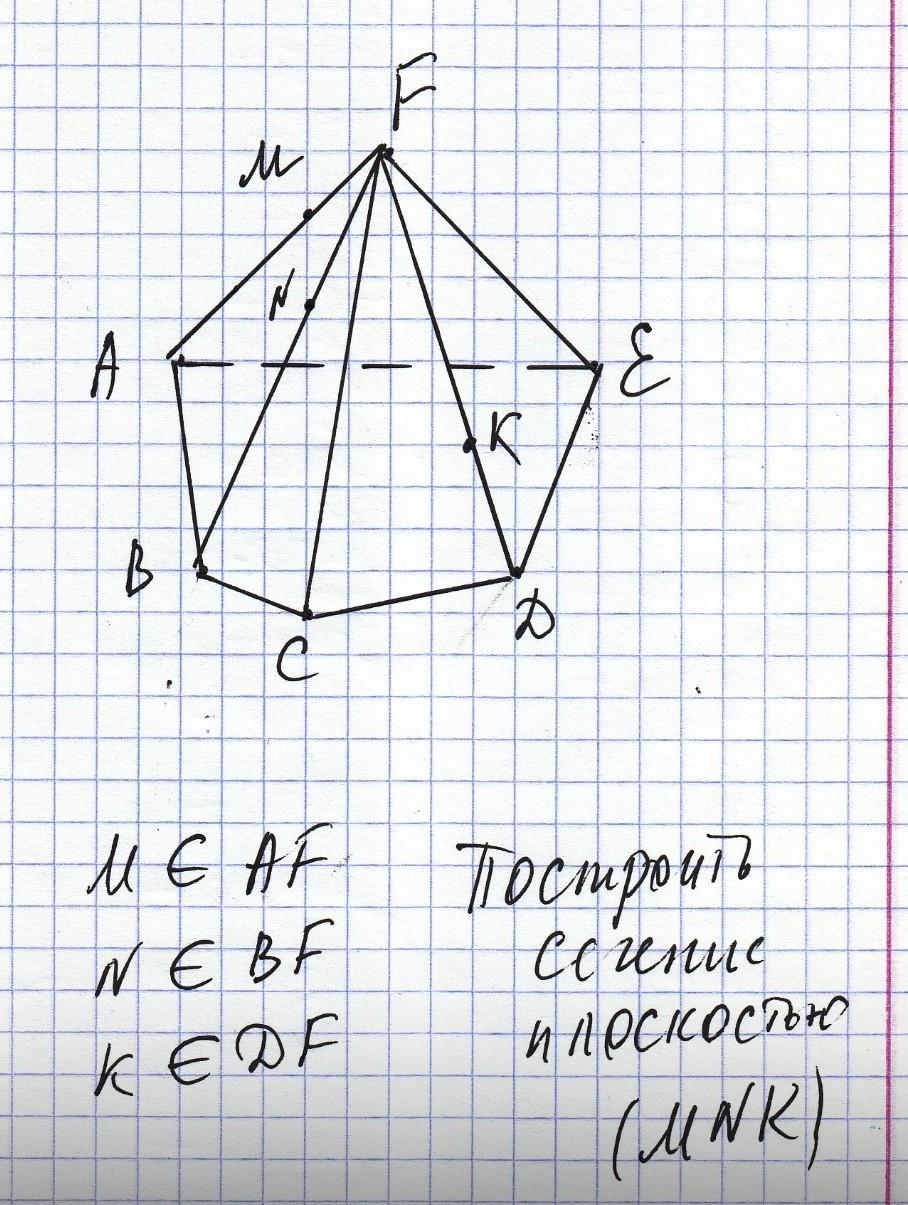 F
M
N
A
E
K
B
D
C
M ∈ AF
N ∈ BF
K ∈ DF
Построить
сечение
плоскостью
(MNK)